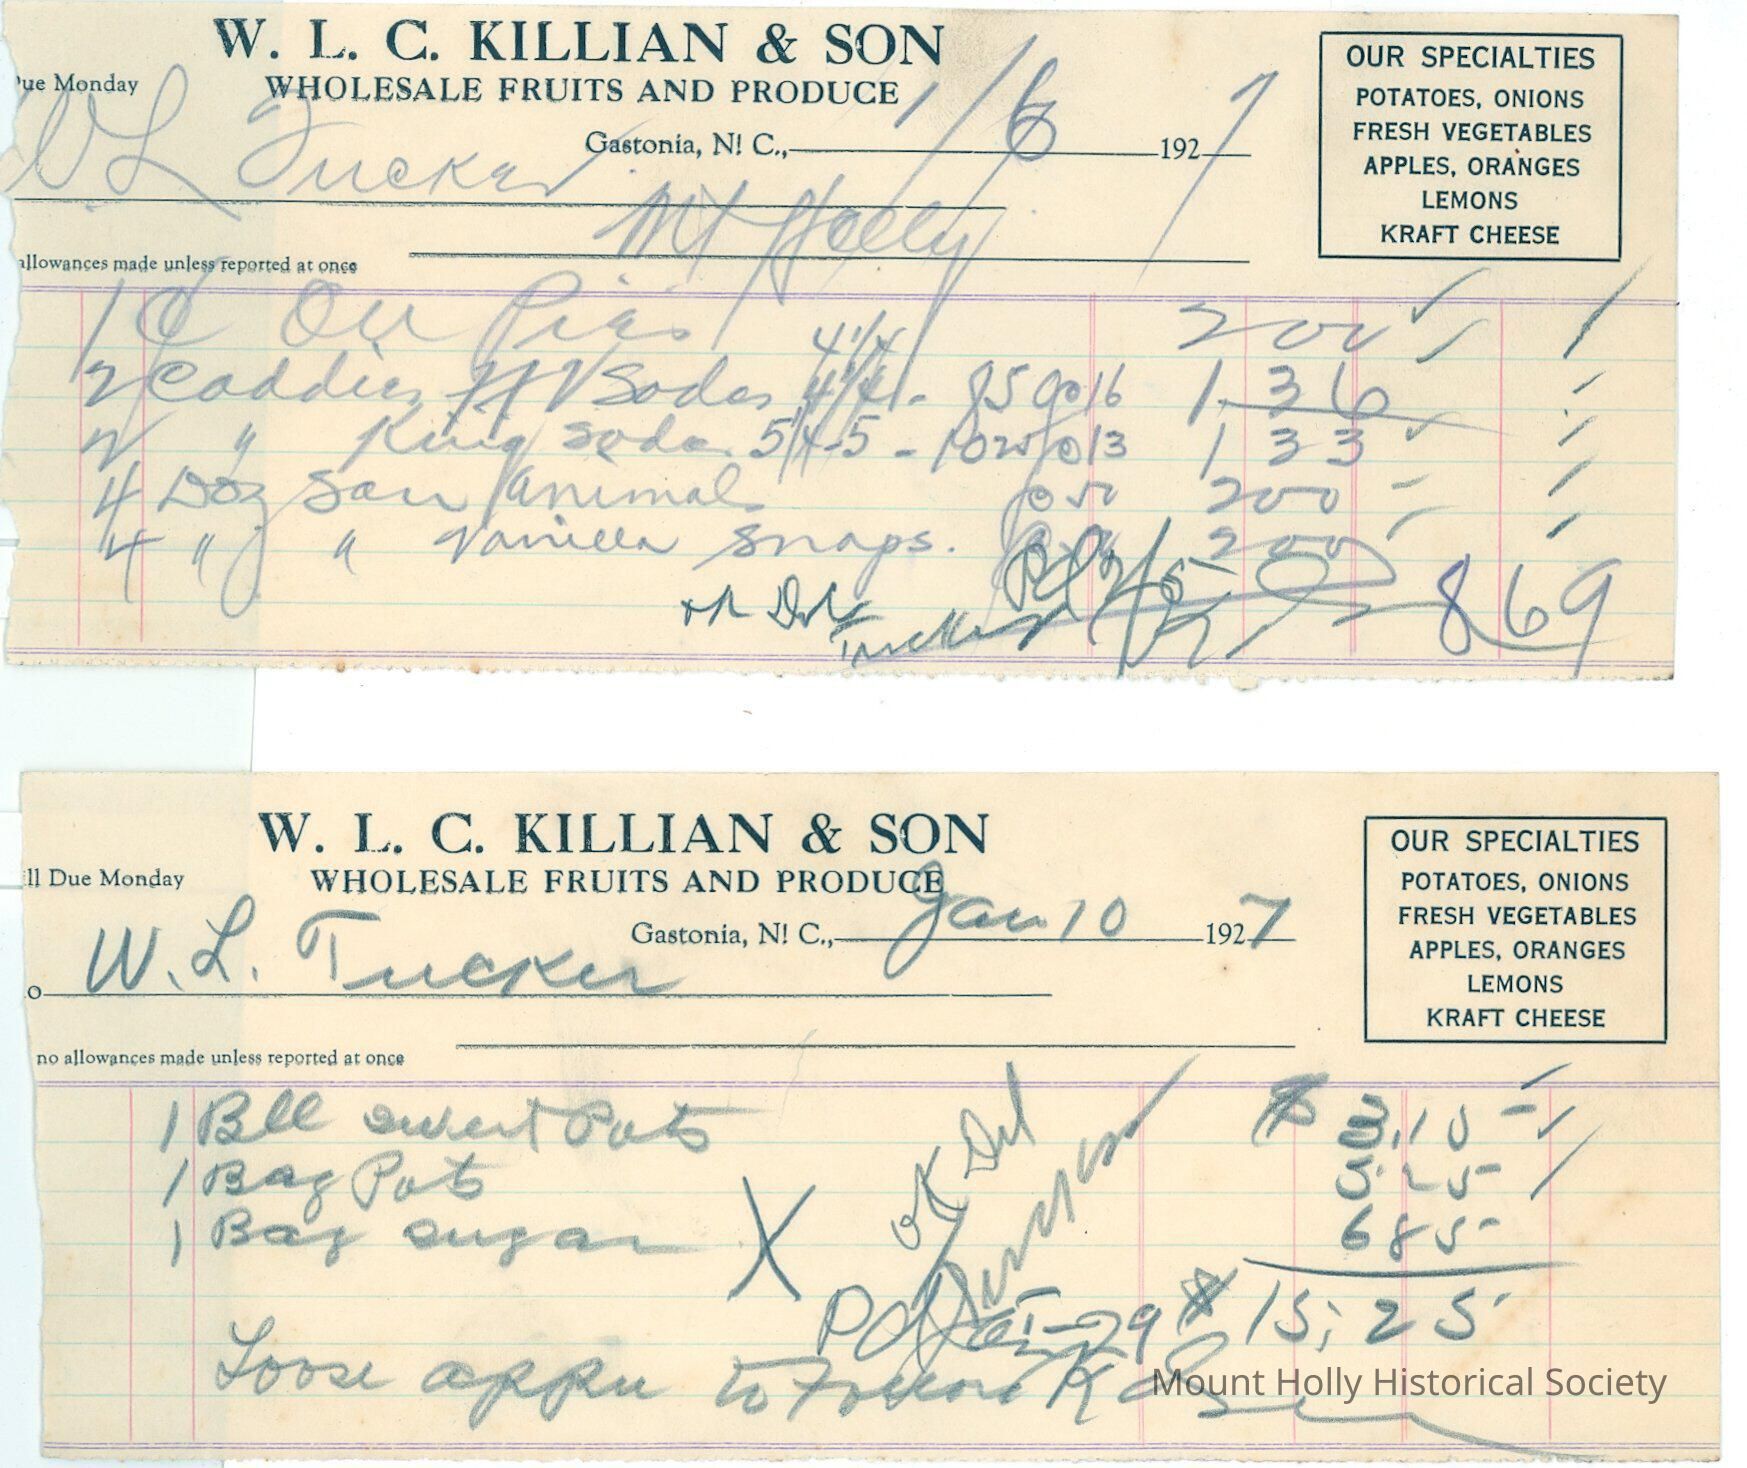 W. L. C. KILLIAN & SON
ue Monday
WHOLESALE FRUITS AND PRODUCE
Gastonia, N. C., 1/6 1927
W L Tucker
Mt Holly
allowances made unless reported at once
OUR SPECIALTIES
POTATOES, ONIONS
FRESH VEGETABLES
APPLES, ORANGES
LEMONS
KRAFT CHEESE
1 C Pies 200
2 Caddies Sodas 4 1/4 4 1/4 - 85 @ 16 1.36
2 " King Soda 5 1/4-5 - 1025 @ 13 1 33
4 Doz Animal @ 50 200
4 " " Vanilla Snaps. 200
8 69
Tucker
W. L. C. KILLIAN & SON
ll Due Monday
WHOLESALE FRUITS AND PRODUCE
Gastonia, N. C., Jan 10 1927
o W. L. Tucker
no allowances made unless reported at once
OUR SPECIALTIES
POTATOES, ONIONS
FRESH VEGETABLES
APPLES, ORANGES
LEMONS
KRAFT CHEESE
1 Bll sweet Pots $ 3.15
1 Bag Pots 5.25
1 Bag sugar X 6 85
OK Del
Pd 1-29 $ 15.25
Loose to
Mount Holly Historical Society